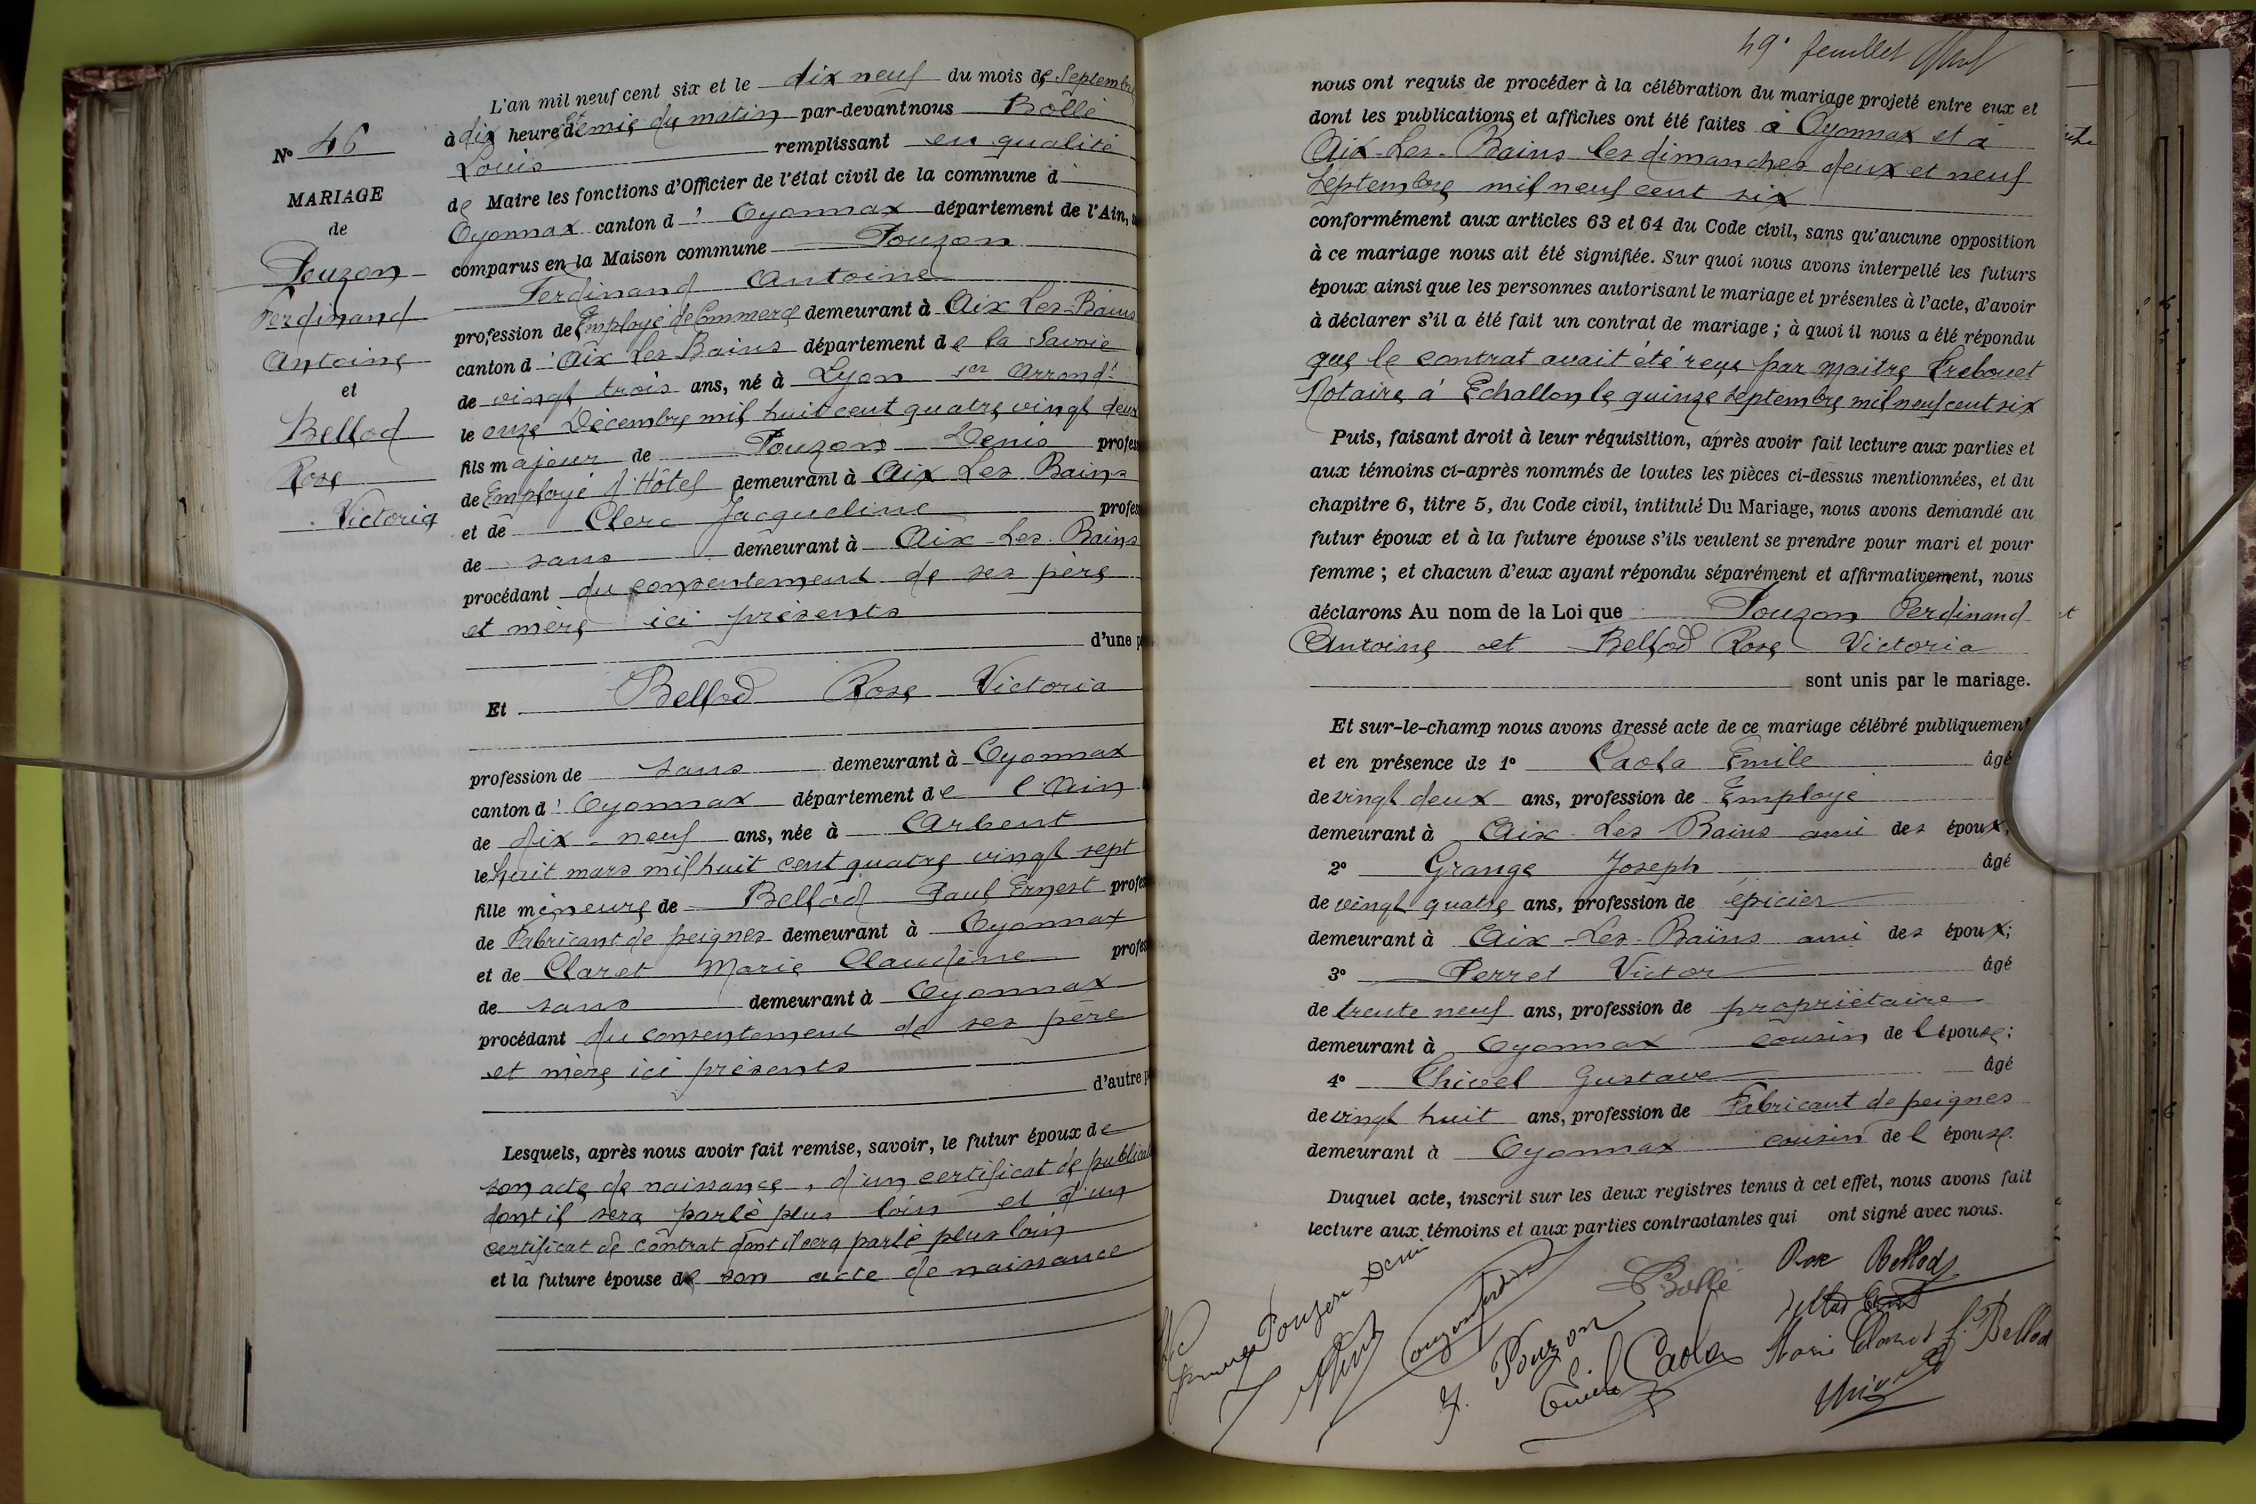 N° 46
MARIAGE
de
Pouzon
Ferdinand
Antoine
et
Bellod
Rose
Victoria
L'an mil neuf cent six et le dix neuf du mois de Septembre
à dix heure et demie du matin par-devant nous Bollé
Louis remplissant en qualité
de Maire les fonctions d'Officier de l'état civil de la commune d
Oyonnax canton d'Oyonnax département de l'Ain,
comparus en la Maison commune Pouzon
Ferdinand Antoine
profession de Employé de Commerce demeurant à Aix Les-Bains
canton d'Aix Les Bains département de la Savoie
de vingt trois ans, né à Lyon 1er Arrondt
le onze Décembre mil huit cent quatre vingt deux
fils majeur de Pouzon Denis profes
de Employé d'Hôtel demeurant à Aix Les Bains
et de Clerc Jacqueline profes
de sans demeurant à Aix-Les-Bains
procédant du consentement de ses père
et mère ici présents
d'une p
Et Bellod Rose Victoria
profession de sans demeurant à Oyonnax
canton d'Oyonnax département de l'Ain
de dix-neuf ans, née à Arbent
le huit mars mil huit cent quatre vingt sept
fille mineure de Bellod Paul Ernest profes
de Fabricant de peignes demeurant à Oyonnax
et de Claret Marie Claudène profes
de sans demeurant à Oyonnax
procédant du consentement de ses père
et mère ici présents
d'autre p
Lesquels, après nous avoir fait remise, savoir, le futur époux de
son acte de naissance, d'un certificat de publicat
dont il sera parlé plus loin et d'un
certificat de contrat dont il sera parlé plus loin
et la future épouse de son acte de naissance
49e feuillet
nous ont requis de procéder à la célébration du mariage projeté entre eux et
dont les publications et affiches ont été faites à Oyonnax et à
Aix-Les-Bains les dimanches deux et neuf
Septembre mil neuf cent six
conformément aux articles 63 et 64 du Code civil, sans qu'aucune opposition
à ce mariage nous ait été signifiée. Sur quoi nous avons interpellé les futurs
époux ainsi que les personnes autorisant le mariage et présentes à l'acte, d'avoir
à déclarer s'il a été fait un contrat de mariage ; à quoi il nous a été répondu
que le contrat avait été reçu par maître Trebouet
Notaire à Echallon le quinze Septembre mil neuf cent six
Puis, faisant droit à leur réquisition, après avoir fait lecture aux parties et
aux témoins ci-après nommés de toutes les pièces ci-dessus mentionnées, et du
chapitre 6, titre 5, du Code civil, intitulé Du Mariage, nous avons demandé au
futur époux et à la future épouse s'ils veulent se prendre pour mari et pour
femme ; et chacun d'eux ayant répondu séparément et affirmativement, nous
déclarons Au nom de la Loi que Pouzon Ferdinand
Antoine et Bellod Rose Victoria
sont unis par le mariage.
Et sur-le-champ nous avons dressé acte de ce mariage célébré publiquement
et en présence de 1° Caola Emile âgé
de vingt deux ans, profession de Employé
demeurant à Aix-Les-Bains ami des époux;
2° Grange Joseph âgé
de vingt quatre ans, profession de épicier
demeurant à Aix-Les-Bains ami des époux;
3° Perret Victor âgé
de trente neuf ans, profession de propriétaire
demeurant à Oyonnax cousin de l'épouse;
4° Chivel Gustave âgé
de vingt huit ans, profession de Fabricant de peignes
demeurant à Oyonnax cousin de l'épouse.
Duquel acte, inscrit sur les deux registres tenus à cet effet, nous avons fait
lecture aux témoins et aux parties contractantes qui ont signé avec nous.
Pouzon Denis
Bollé
Rose Bellod
J. Pouzon
Emile Caola
Marie Claret f. Bellod